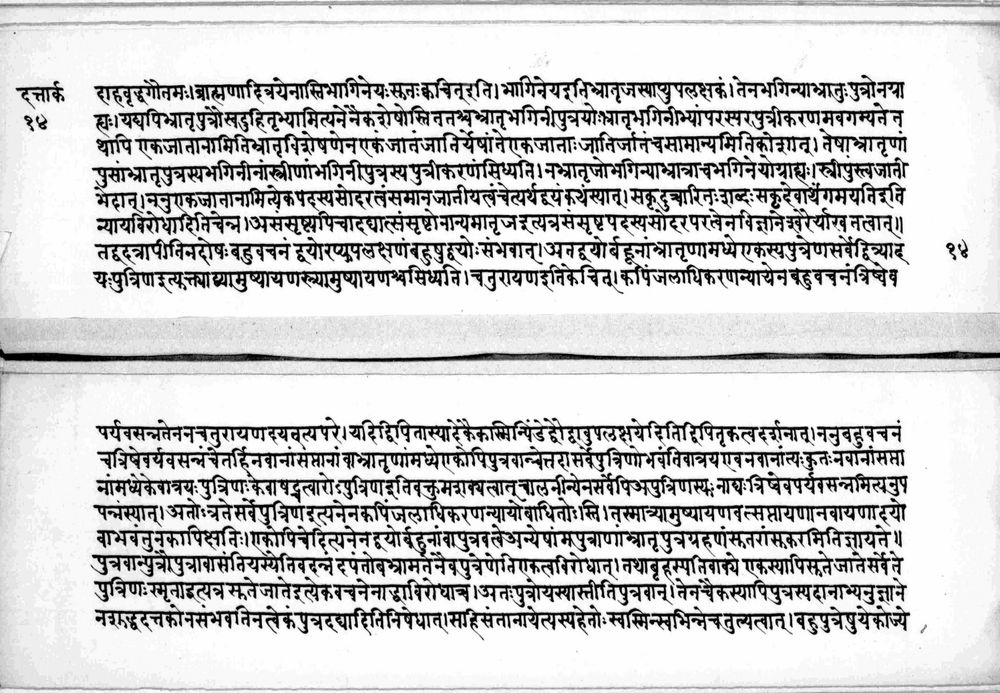 दत्तार्क
१४
दाहवृद्धगौतमः।ब्राह्मणादित्रयेनास्तिभागिनेयःसुतःक्वचित्इति।भागिनेयइतिभ्रातृजस्याप्युपलक्षकं।तेनभगिन्याभ्रातुःपुत्रोनग्रा
ह्यः।यद्यपिभ्रातृपुत्रौस्वसृदुहितृभ्यामित्यनेनैकशेषोस्तिततश्चभ्रातृभगिनीपुत्रयोःभ्रातृभगिनीभ्यांपरस्परपुत्रीकरणमवगम्यते त
थापि एकजातानामितिभ्रातृविशेषणेन एकंजातंजातिर्येषांतेएकजाताःजातिर्जातंचसामान्यमितिकोशात्। तेषांभ्रातृणां
पुसांभ्रातृपुत्रस्यभगिनीनांस्त्रीणांभगिनीपुत्रस्यपुत्रीकरणंसिध्यति। नभ्रातृजोभगिन्याभ्रात्राचभगिनेयोग्राह्यः। स्त्रीपुंस्त्वजाती
भेदात्। ननुएकजातानामित्येकपदस्यसोदरत्वंसमानजातीयत्वंचेत्यर्थद्वयंकथंस्यात्। सकृदुच्चारितःशब्दःसकृदेवार्थंगमयतिइति
न्यायविरोधादितिचेन्न। असंसृष्टयपिचादद्यात्संसृष्टोनान्यमातृजइत्यत्रसंसृष्टपदस्यसोदरपरत्वेनविज्ञानेश्वरैर्व्याख्यातत्वात्॥
तद्वदत्रापीतिनदोषः बहुवचनं द्वयोरप्युपलक्षणंबहुषुद्वयोःसंभवात्। अतद्वयोर्बहूनांभ्रातृणामध्ये एकस्यपुत्रेणसर्वेद्वित्र्याद्
१४
यःपुत्रिणइत्युक्त्याद्व्यामुष्यायणत्र्यामुष्यायणश्चसिध्यति। चतुरायणइतिकेचित्। कपिंजलाधिकरणन्यायेनबहुवचनंत्रिष्वेव
पर्यवसन्नतेननचतुरायणदयवत्यपरे। यदिद्विपितास्यादेकैकस्मिन्पिंडेद्वौद्वावुपलक्षयेदितिद्विपितृकत्वदर्शनात्। ननुबहुवचनं
चत्रिषेवपर्यवसन्नंचेतर्हिनवानांसप्तानांवाभ्रातृणांमध्येएकोपिपुत्रवान्चेत्तदासर्वेपुत्रिणोभवंतिवात्रयएवनवानांत्यःकुतःनवानांसप्ता
नांमध्येकेवात्रयःपुत्रिणःकेवाषट्चत्वारोऽपुत्रिणइतिवक्तुमशक्यत्वात्चालनीन्यैनसर्वेपिअपुत्रिणस्युःनाद्यःत्रिष्वेवपर्यवसन्नमित्यनुप
पन्नस्यात्। अतोऽत्रतेसर्वेपुत्रिणइत्यनेनकपिंजलाधिकरणन्यायोबाधितोऽस्ति। तस्मात्र्यामुष्यायणवत्सप्तायणानवायणादयो
वाभवंतुनकापिक्षतिः।एकोपिचेदित्यनेनद्वयोर्बहूनांवापुत्रवत्वेअन्येषांमपुत्राणांभ्रातृपुत्रग्रहणंसुतरांसुकरमितिज्ञायते॥
पुत्रवान्पुत्रौपुत्रावासंतियस्येतिवदन्नंदपंतोबभ्रामतेनैवपुत्रेणेतिएकत्वविरोधात्। तथाबृहस्पतिवाक्ये एकस्यापिसुतेजातेसर्वेते
पुत्रिणःस्मृताइत्यत्र सुतेजातेइत्येकवचनेनाद्धाविरोधाच्च। अतःपुत्रोयस्यास्तीतिपुत्रवान्। तेनचैकस्यापिपुत्रस्यदानाभ्यनुज्ञाने
नशुद्धदत्तकोनसंभवतिनत्वेकंपुत्रंदद्यादितिनिषेधात्। सहिसंतानायेत्यस्यहेतोःस्वस्मिन्सभिन्नेचतुल्यत्वात्। बहुपुत्रेषुयेकोज्ये